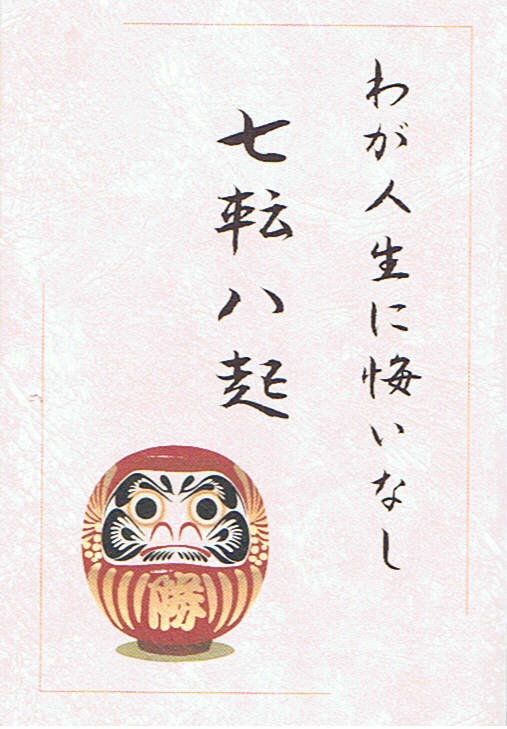 わが人生に悔いなし
七転八起
勝